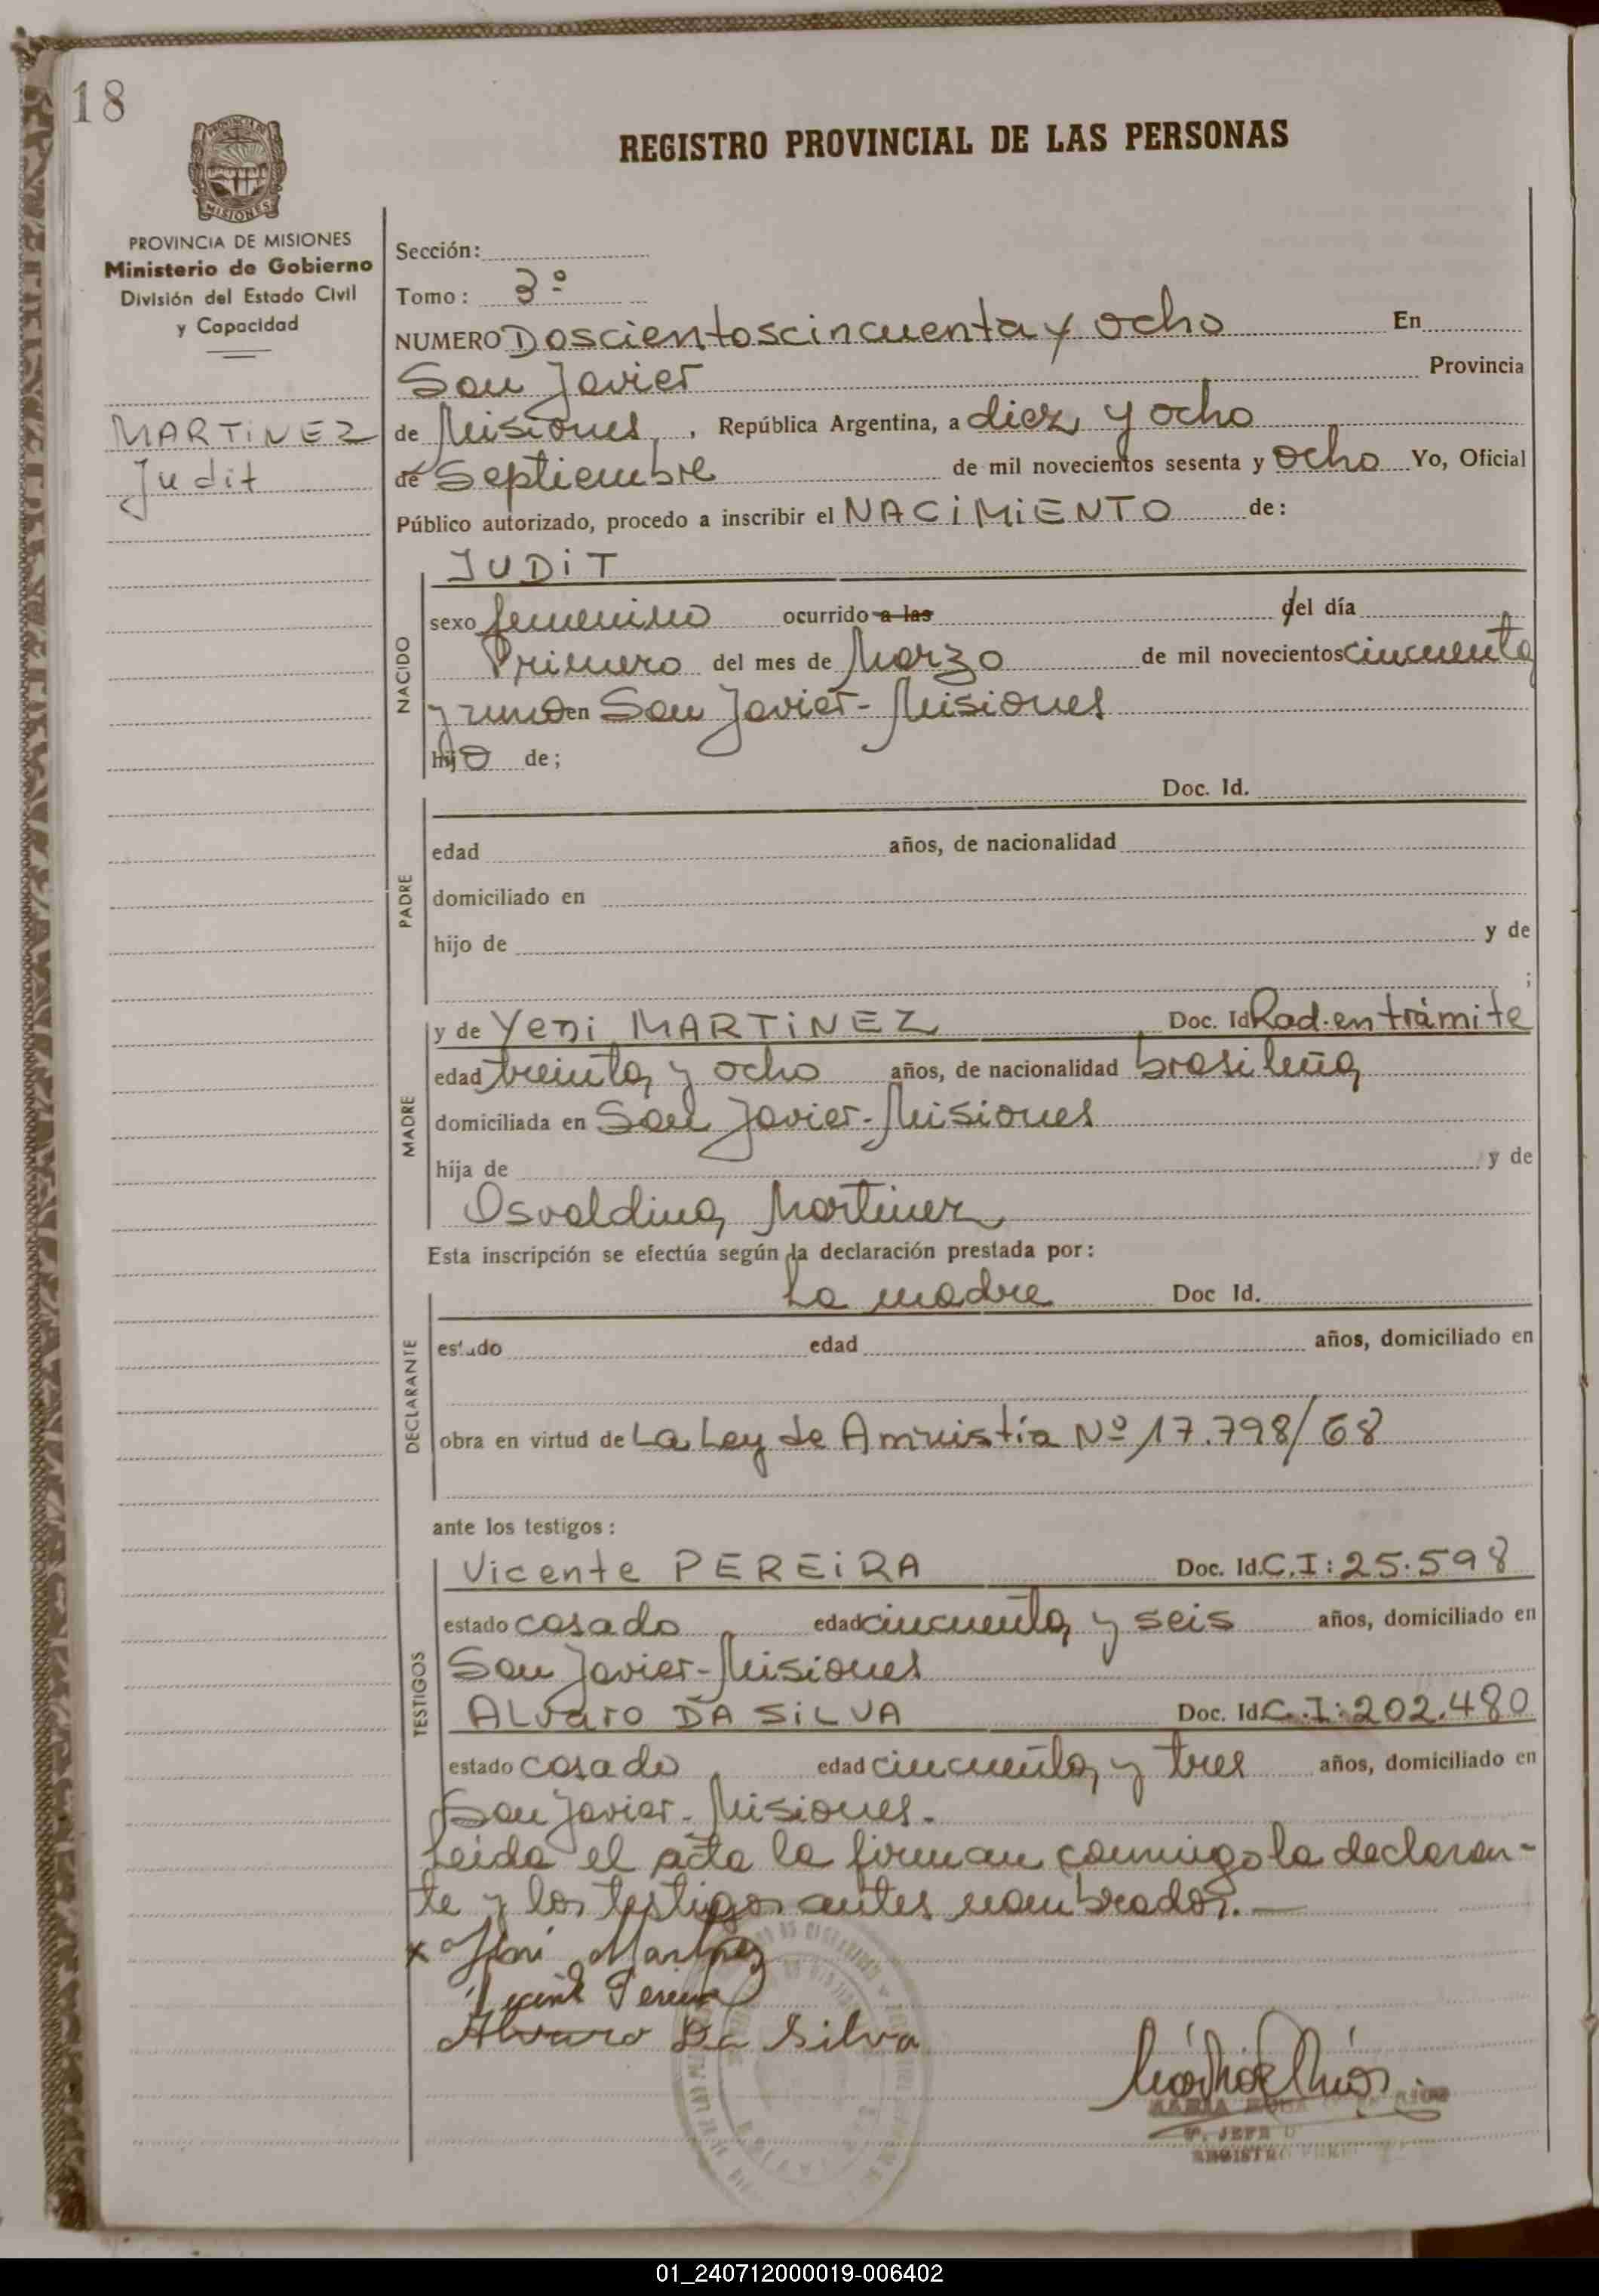 18
REGISTRO PROVINCIAL DE LAS PERSONAS
PROVINCIA DE
MISIONES
PROVINCIA DE MISIONES
Ministerio de Gobierno
División del Estado Civil
y Capacidad
MARTiNEZ
Judit
Sección:
Tomo: 3º
NUMERO Doscientoscincuenta y ocho En
San Javier Provincia
de Misiones, República Argentina, a diez y ocho
de Septiembre de mil novecientos sesenta y ocho Yo, Oficial
Público autorizado, procedo a inscribir el NACiMiENTO de:
JUDiT
NACIDO
sexo femenino ocurrido a las del día
Primero del mes de Marzo de mil novecientos cincuenta
y uno en San Javier - Misiones
hija de;
PADRE
Doc. Id.
edad años, de nacionalidad
domiciliado en
hijo de y de
;
MADRE
y de Yeni MARTiNEZ Doc. Id Rad. en trámite
edad treinta y ocho años, de nacionalidad brasileña
domiciliada en San Javier - Misiones
hija de y de
Osvaldina Martinez
Esta inscripción se efectúa según la declaración prestada por:
DECLARANTE
La madre Doc Id.
estado edad años, domiciliado en
obra en virtud de La Ley de Amnistía Nº 17.798/68
ante los testigos:
TESTIGOS
Vicente PEREiRA Doc. Id. C.I: 25.598
estado casado edad cincuenta y seis años, domiciliado en
San Javier - Misiones
ALvaro DA SiLVA Doc. Id. C.I: 202.480
estado casado edad cincuenta y tres años, domiciliado en
San Javier - Misiones.
Leída el acta la firman conmigo la declaran-
te y los testigos antes nombrados.—
x Martinez
Pereira
Alvaro Da Silva
MARIA
JEFE
REGISTRO
01_240712000019-006402